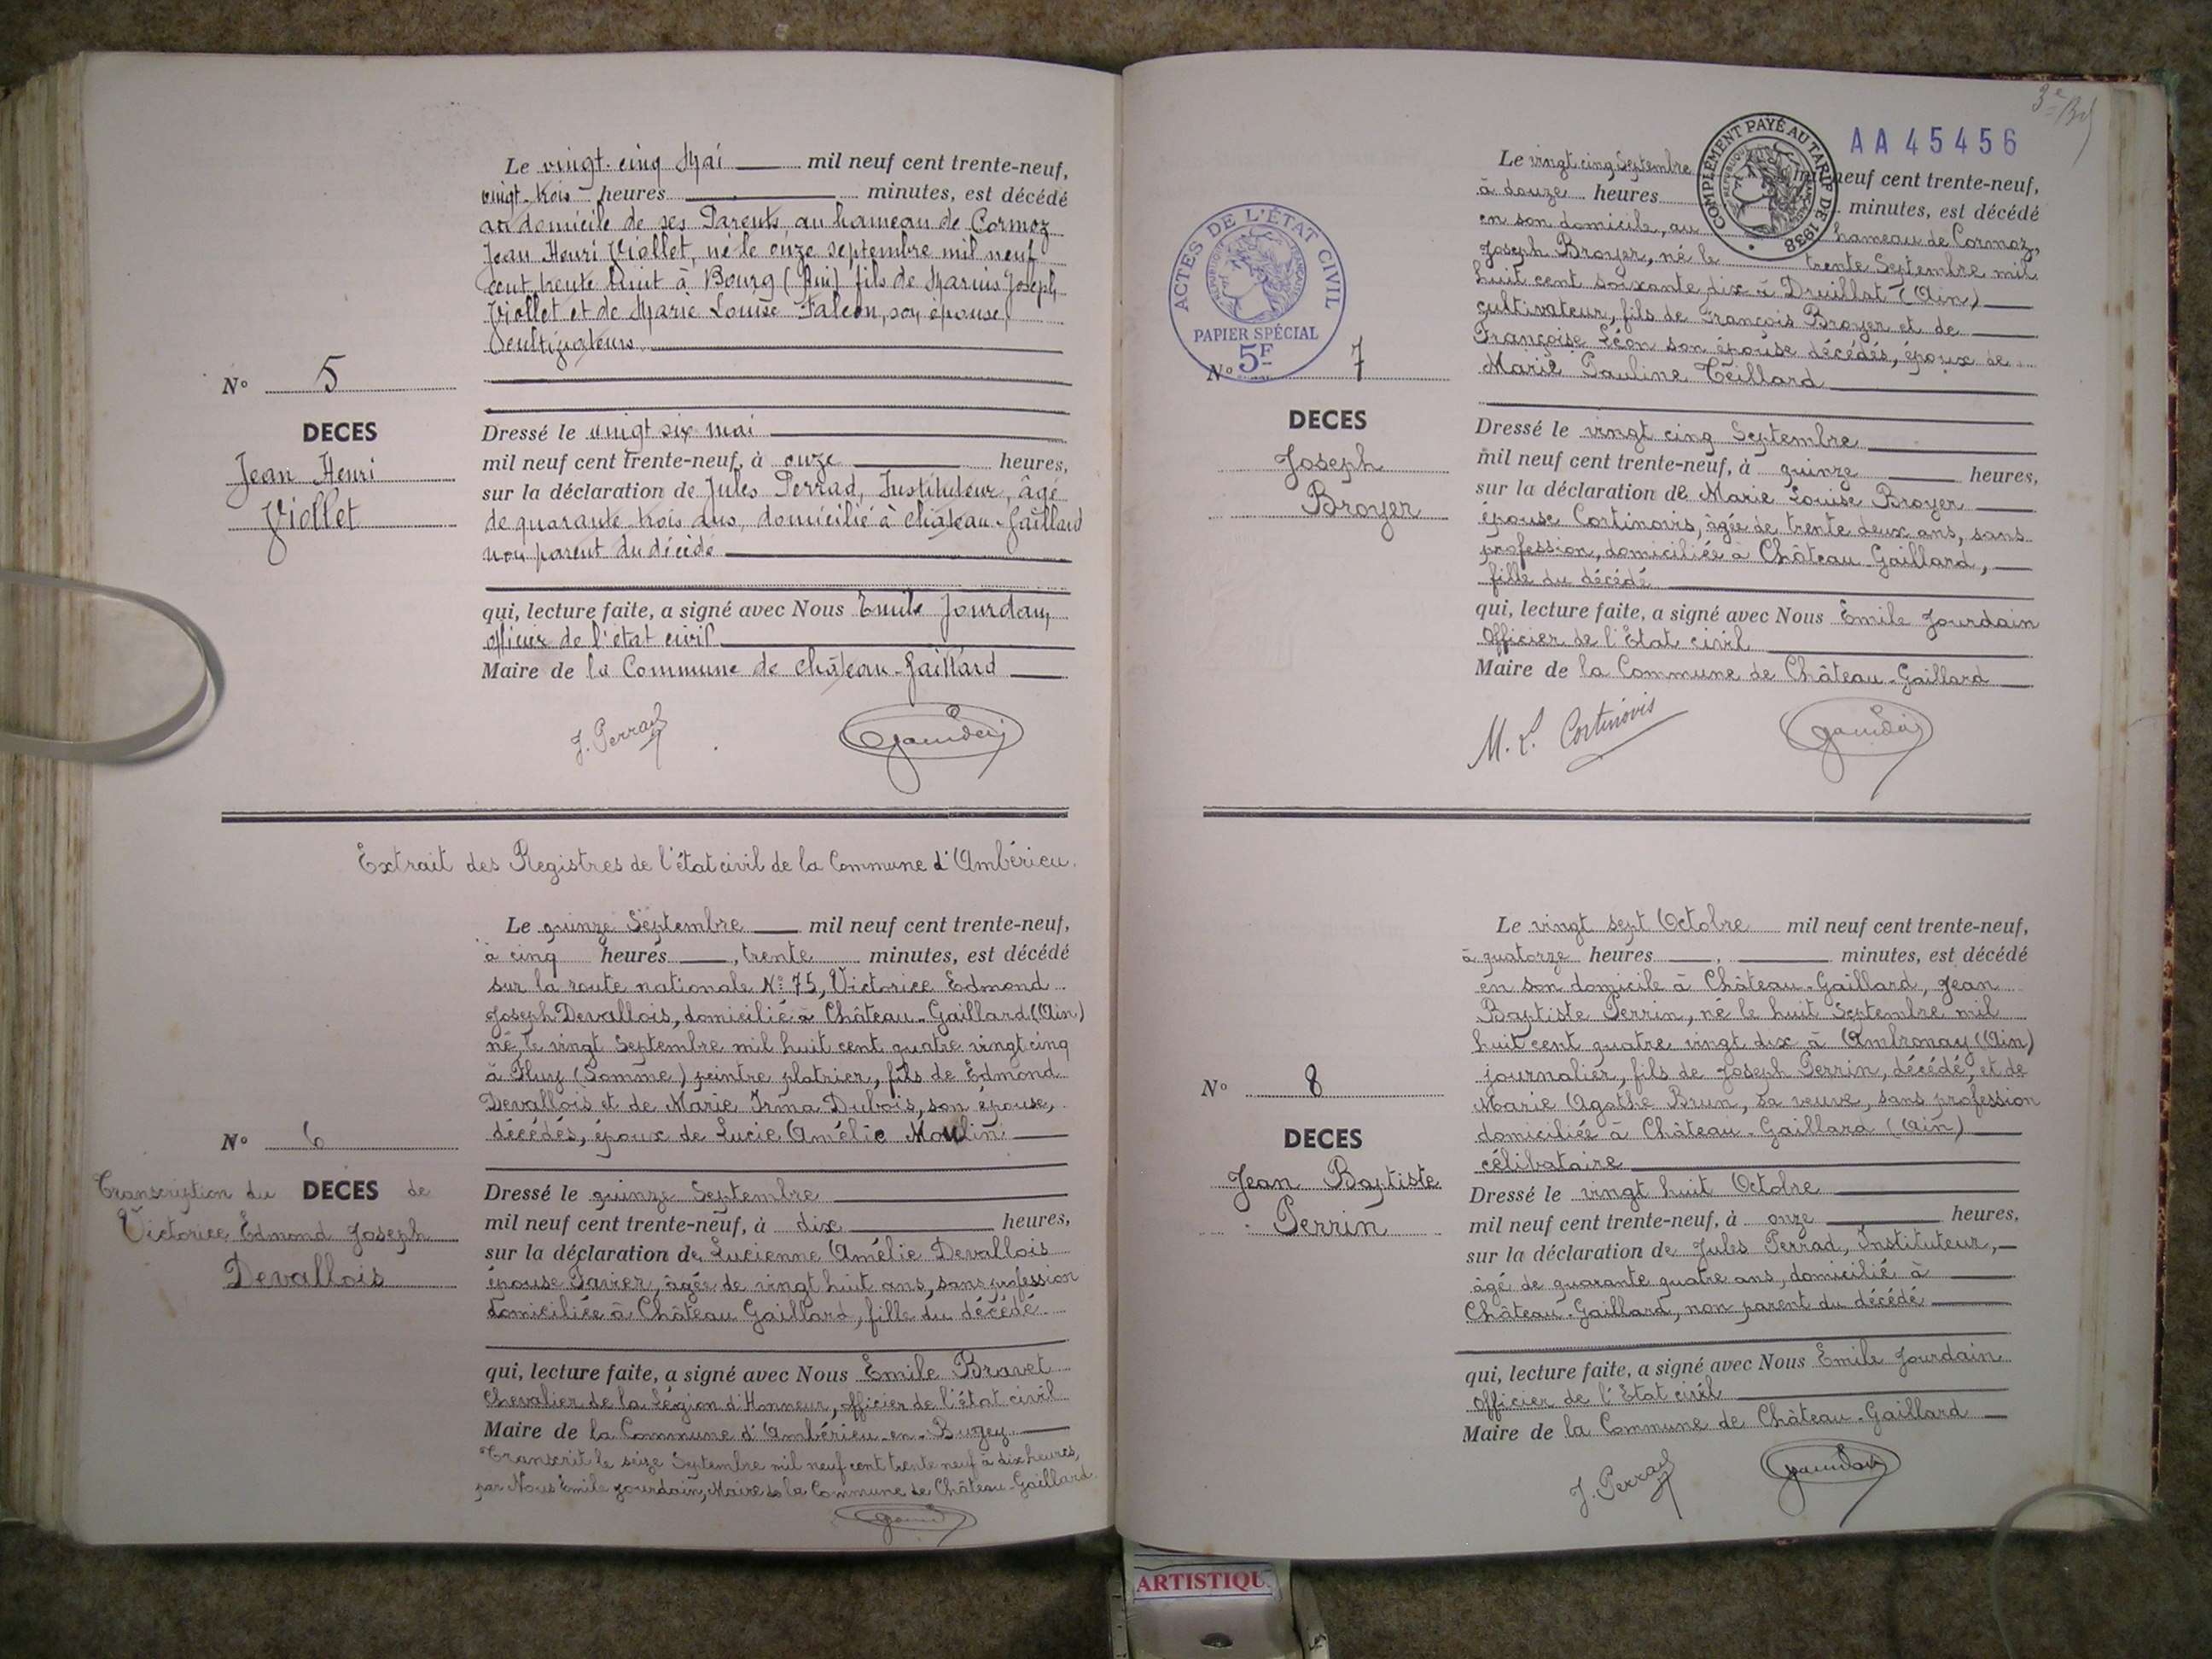 Le vingt-cinq Mai mil neuf cent trente-neuf,
vingt-trois heures minutes, est décédé
au domicile de ses Parents, au hameau de Cormoz
Jean Henri Viollet, né le onze septembre mil neuf
cent trente huit à Bourg (Ain) fils de Marius Joseph
Viollet et de Marie Louise Falcon, son épouse,
cultivateurs.
N° 5
DECES
Jean Henri
Viollet
Dressé le vingt six mai
mil neuf cent trente-neuf, à onze heures,
sur la déclaration de Jules Perrad, Instituteur, âgé
de quarante-trois ans, domicilié à Château-Gaillard
non parent du décédé
qui, lecture faite, a signé avec Nous Emile Jourdain
officier de l'état civil
Maire de la Commune de Château-Gaillard
J. Perrad
Extrait des Registres de l'état civil de la Commune d'Ambérieu.
Le quinze Septembre mil neuf cent trente-neuf,
à cinq heures, trente minutes, est décédé
sur la route nationale N° 75, Victorice Edmond
Joseph Devallois, domicilié à Château-Gaillard (Ain)
né, le vingt Septembre mil huit cent quatre vingt cinq
à Fluy (Somme) peintre platrier, fils de Edmond
Devallois et de Marie Irma Dubois, son épouse,
décédés, époux de Lucie Amélie Moulin
N° 6
Transcription du DECES de
Victorice Edmond Joseph
Devallois
Dressé le quinze Septembre
mil neuf cent trente-neuf, à dix heures,
sur la déclaration de Lucienne Amélie Devallois
épouse âgée de vingt huit ans, sans profession
domiciliée à Château Gaillard, fille du décédé
qui, lecture faite, a signé avec Nous Emile Bravet
Chevalier de la Légion d'Honneur, officier de l'état civil
Maire de la Commune d'Ambérieu-en-Bugey
Transcrit le seize Septembre mil neuf cent trente neuf à dix heures,
par Nous Emile Jourdain, Maire de la Commune de Château-Gaillard.
3e
AA 45456
COMPLÉMENT PAYÉ AU TARIF DE 1938
RÉPUBLIQUE FRANÇAISE
ACTES DE L'ÉTAT CIVIL
RÉPUBLIQUE FRANÇAISE
PAPIER SPÉCIAL
5F
Le vingt cinq Septembre mil neuf cent trente-neuf,
à douze heures minutes, est décédé
en son domicile, au hameau de Cormoz,
Joseph Broyer, né le trente Septembre mil
huit cent soixante dix à Druillat (Ain)
cultivateur, fils de François Broyer et de
Françoise Léon son épouse décédés, époux de
Marie Pauline Teillard
N° 7
DECES
Joseph
Broyer
Dressé le vingt cinq Septembre
mil neuf cent trente-neuf, à quinze heures,
sur la déclaration de Marie Louise Broyer
épouse Cortinovis, âgée de trente deux ans, sans
profession, domiciliée à Château-Gaillard,
fille du décédé
qui, lecture faite, a signé avec Nous Emile Jourdain
Officier de l'Etat civil
Maire de la Commune de Château-Gaillard
M. L. Cortinovis
Le vingt sept Octobre mil neuf cent trente-neuf,
à quatorze heures, minutes, est décédé
en son domicile à Château-Gaillard, Jean
Baptiste Perrin, né le huit Septembre mil
huit cent quatre vingt dix à Ambronay (Ain)
journalier, fils de Joseph Perrin, décédé, et de
Marie Agathe Brun, sa veuve, sans profession
domiciliée à Château-Gaillard (Ain)
célibataire
N° 8
DECES
Jean Baptiste
Perrin
Dressé le vingt huit Octobre
mil neuf cent trente-neuf, à onze heures,
sur la déclaration de Jules Perrad, Instituteur,
âgé de quarante quatre ans, domicilié à
Château-Gaillard, non parent du décédé
qui, lecture faite, a signé avec Nous Emile Jourdain
Officier de l'Etat civil
Maire de la Commune de Château-Gaillard
J. Perrad
ARTISTIQU